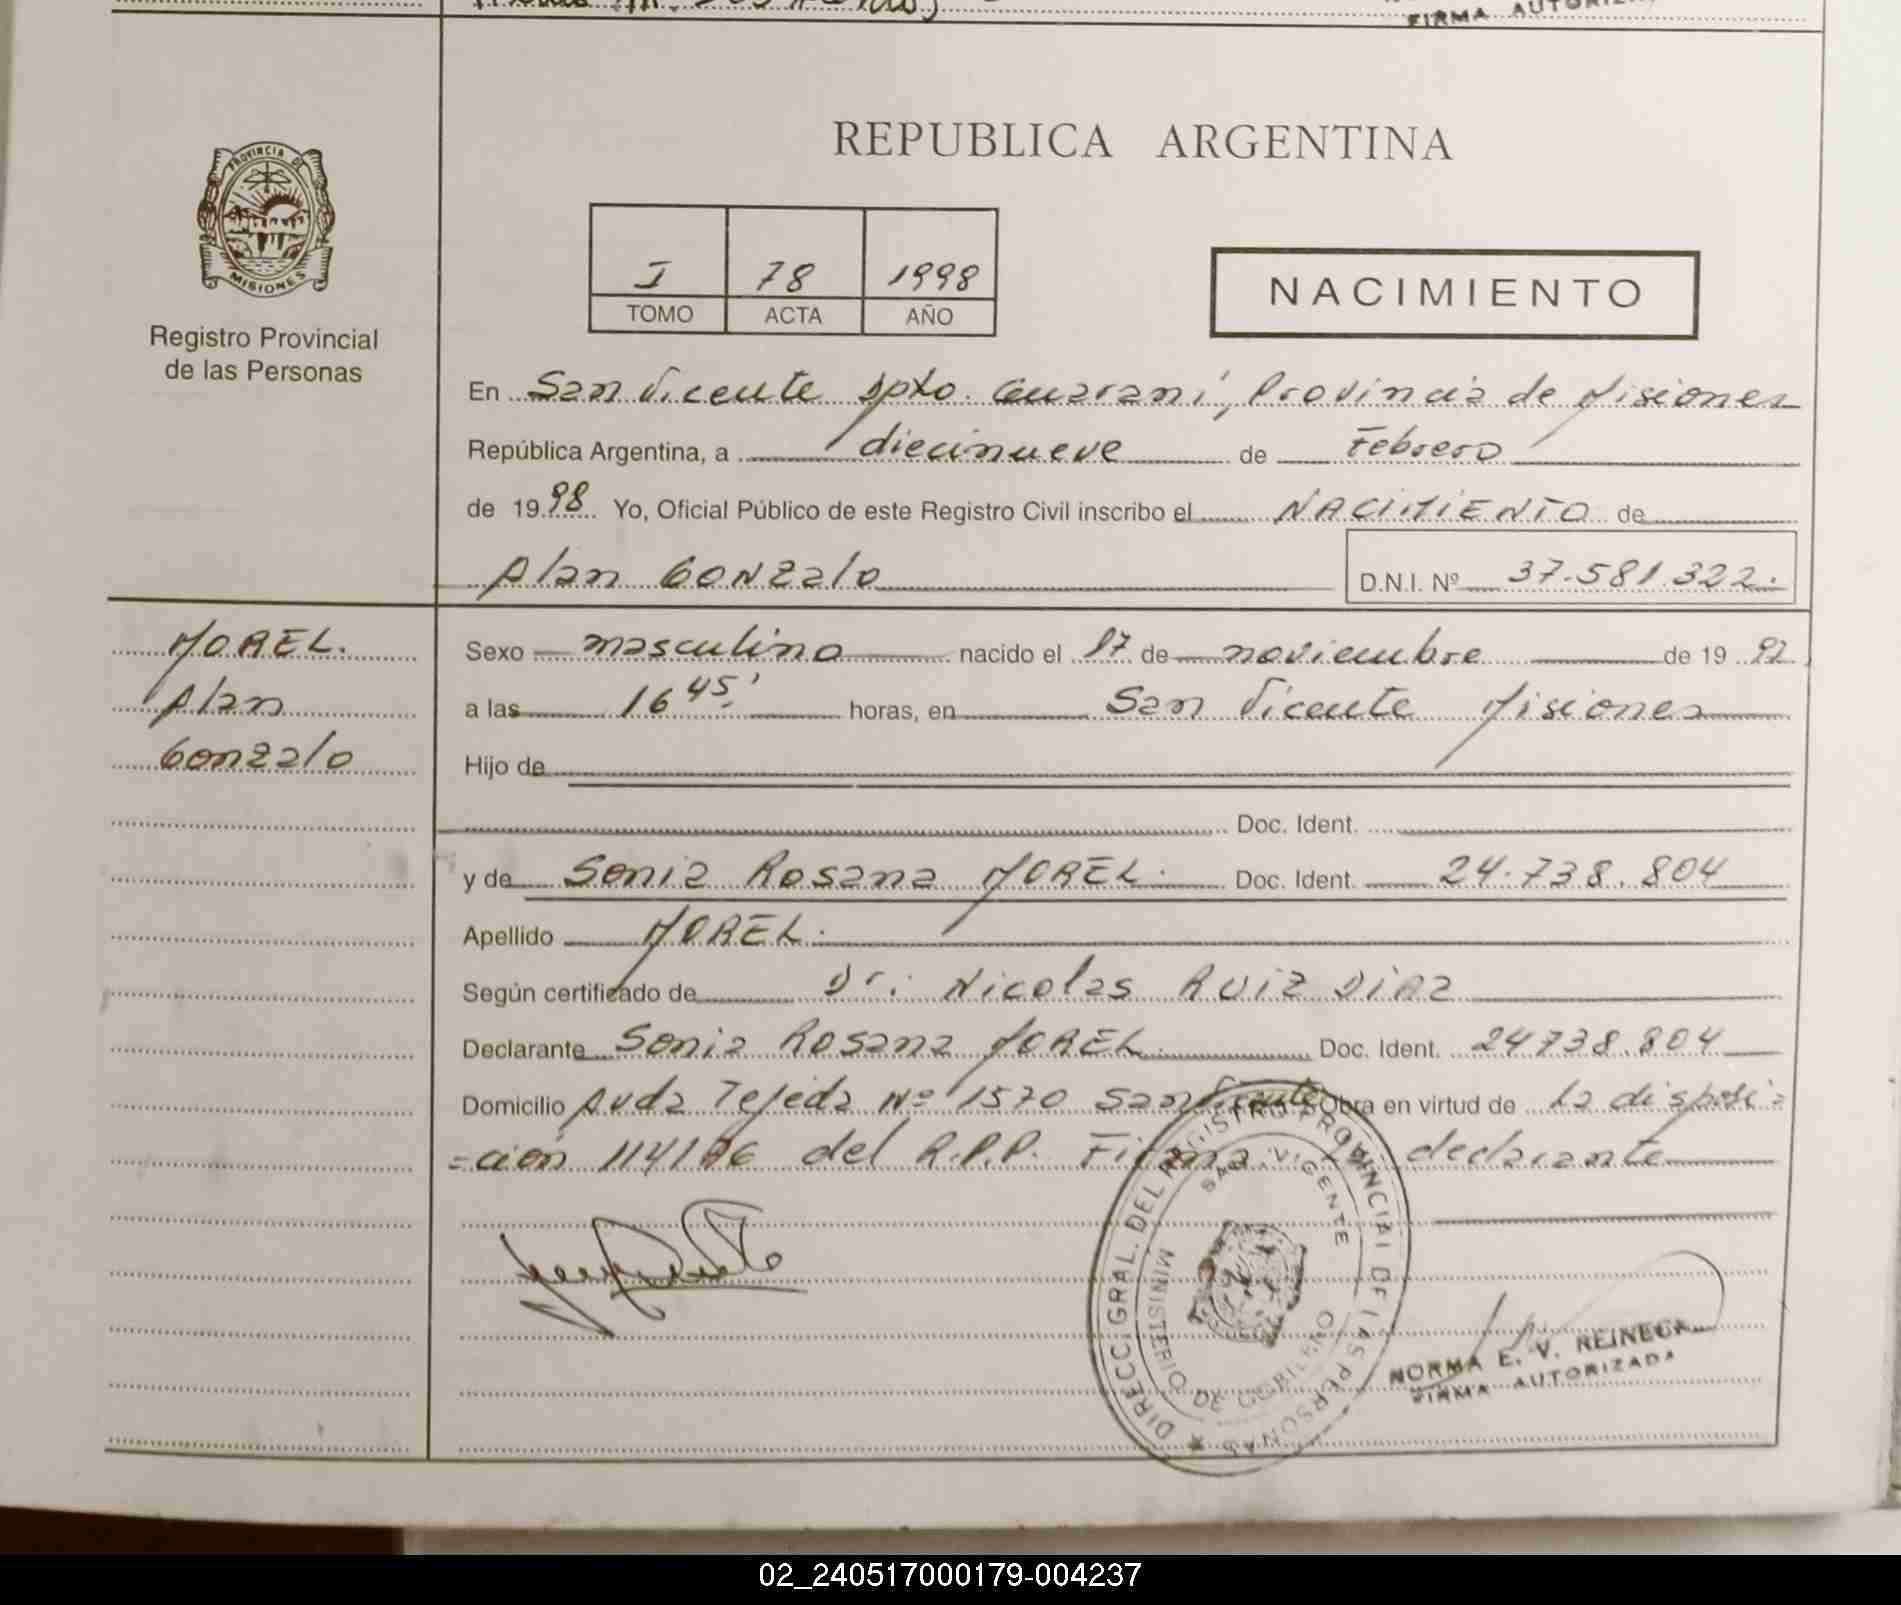 FIRMA AUTORIZ
REPUBLICA ARGENTINA
PROVINCIA DE
MISIONES
Registro Provincial
de las Personas
I 78 1998
TOMO ACTA AÑO
NACIMIENTO
En San Vicente Dpto. Guaraní, Provincia de Misiones
República Argentina, a diecinueve de Febrero
de 19 98 Yo, Oficial Público de este Registro Civil inscribo el NACIMIENTO de
Alan Gonzalo D.N.I. Nº 37.581.322.
MOREL.
Alan
Gonzalo
Sexo masculino nacido el 17 de noviembre de 19 92
a las 16 45' horas, en San Vicente Misiones
Hijo de
Doc. Ident.
y de Sonia Rosana MOREL. Doc. Ident. 24.738.804
Apellido MOREL.
Según certificado de Dr. Nicolas RUIZ DIAZ
Declarante Sonia Rosana MOREL. Doc. Ident. 24738.804
Domicilio Avda Tejeda Nº 1570 San Vicente Obra en virtud de la disposi=
=ción 114/96 del R.P.P. Firma: La declarante
DIRECC. GRAL. DEL REGISTRO PROVINCIAL DE LAS PERSONAS
SAN VICENTE
MINISTERIO DE GOBIERNO
NORMA E. V. REINECK
FIRMA AUTORIZADA
02_240517000179-004237